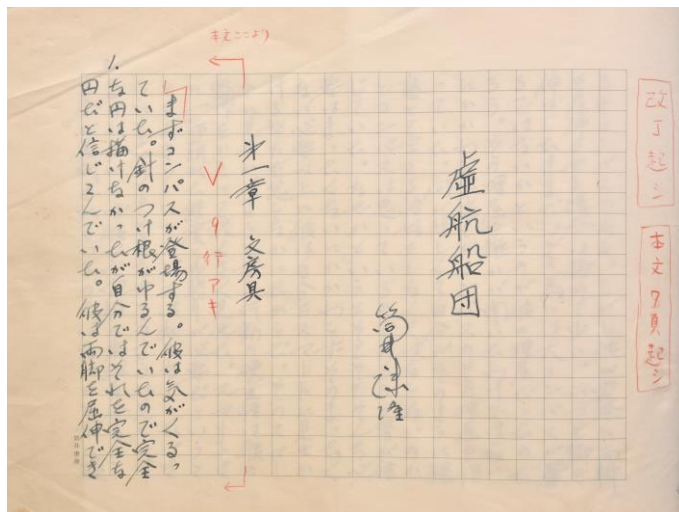 改丁起シ
本文7頁起シ
虚航船団
筒井康隆
本文ここより
第一章　文房具
9行アキ
まずコンパスが登場する。彼は気がくるっ
ていた。針のつけ根がゆるんでいたので完全
な円は描けなかったが自分ではそれを完全な
円だと信じこんでいた。彼は両脚を屈伸でき
1.
筒井康隆